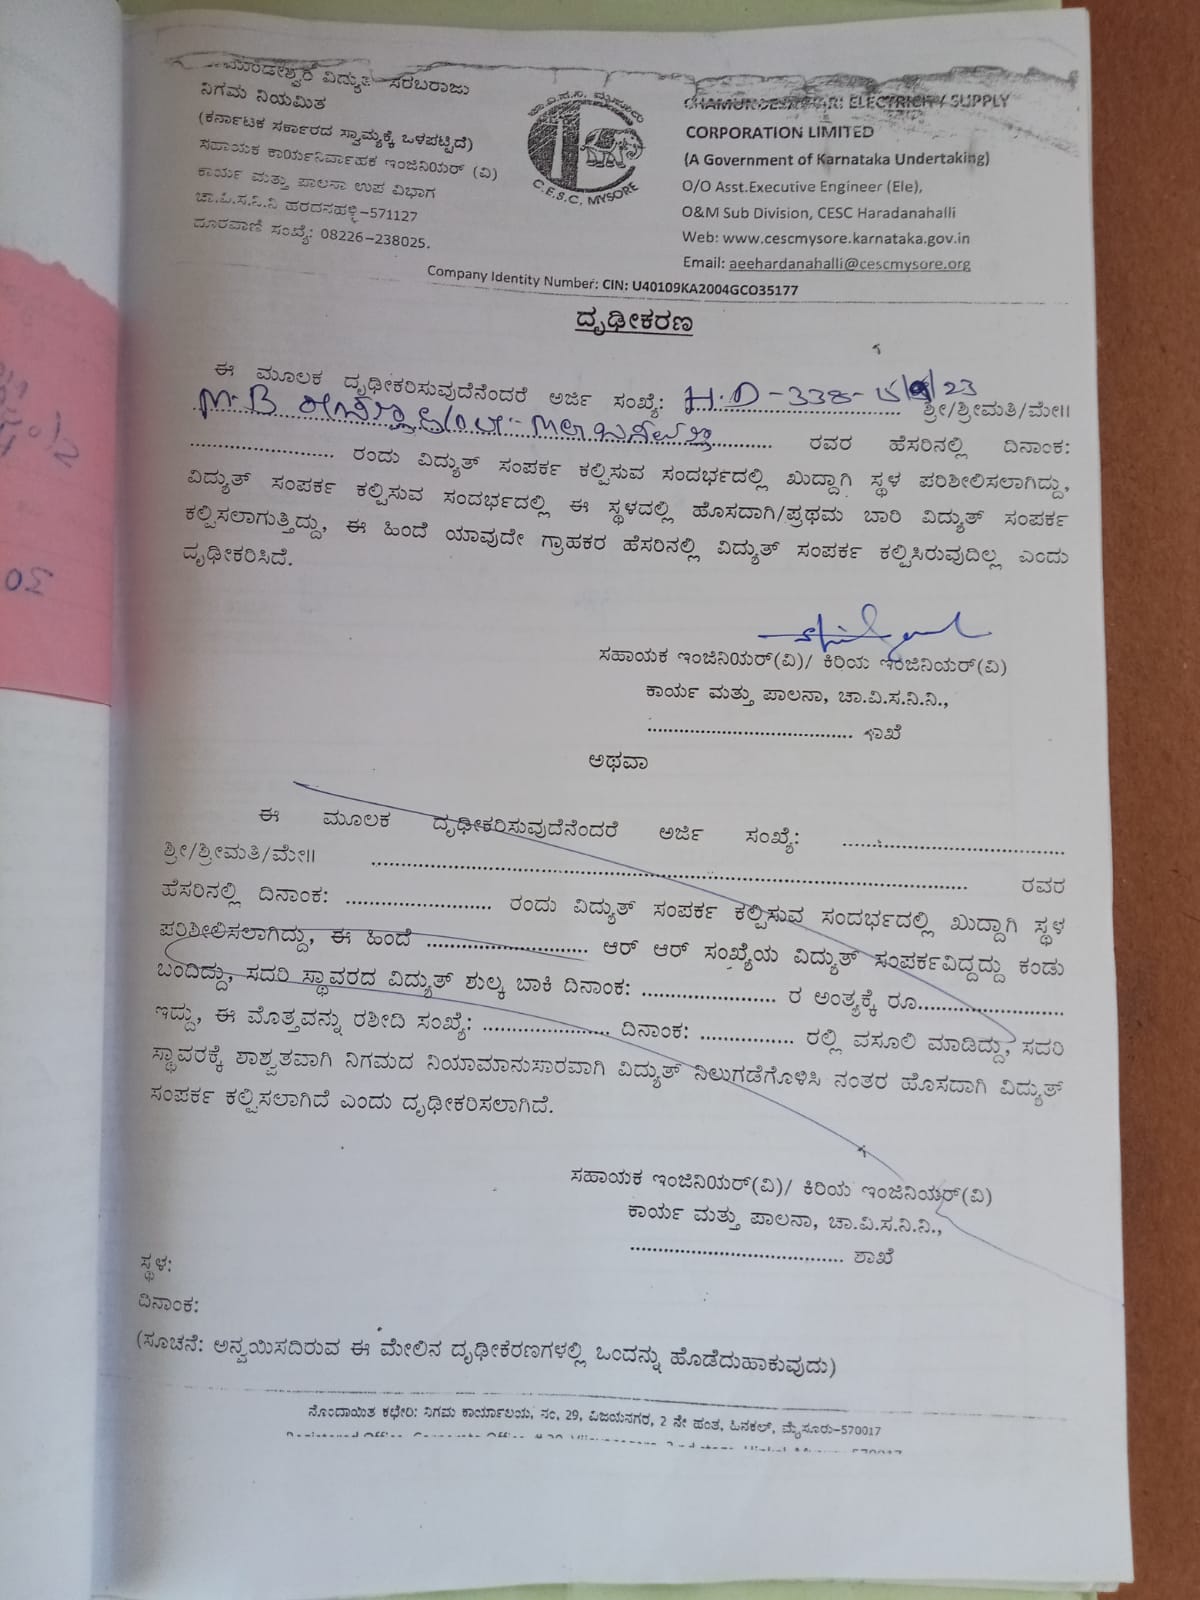 ವಿದ್ಯುತ್ ಸರಬರಾಜು
ನಿಗಮ ನಿಯಮಿತ
(ಕರ್ನಾಟಕ ಸರ್ಕಾರದ ಸ್ವಾಮ್ಯಕ್ಕೆ ಒಳಪಟ್ಟಿದೆ)
ಸಹಾಯಕ ಕಾರ್ಯನಿರ್ವಾಹಕ ಇಂಜಿನಿಯರ್ (ವಿ)
ಕಾರ್ಯ ಮತ್ತು ಪಾಲನಾ ಉಪ ವಿಭಾಗ
ಚಾ.ವಿ.ಸ.ನಿ.ನಿ ಹರದನಹಳ್ಳಿ-571127
ದೂರವಾಣಿ ಸಂಖ್ಯೆ: 08226-238025.
C.E.S.C. MYSORE
CHAMUNDESHWARI ELECTRICITY SUPPLY
CORPORATION LIMITED
(A Government of Karnataka Undertaking)
O/O Asst.Executive Engineer (Ele),
O&M Sub Division, CESC Haradanahalli
Web: www.cescmysore.karnataka.gov.in
Email: aeehardanahalli@cescmysore.org
Company Identity Number: CIN: U40109KA2004GCO35177
ದೃಢೀಕರಣ
ಈ ಮೂಲಕ ದೃಢೀಕರಿಸುವುದೆನೆಂದರೆ ಅರ್ಜಿ ಸಂಖ್ಯೆ: H.D-338- ಶ್ರೀ/ಶ್ರೀಮತಿ/ಮೇ॥
M.B ರವರ ಹೆಸರಿನಲ್ಲಿ ದಿನಾಂಕ:
........................ ರಂದು ವಿದ್ಯುತ್ ಸಂಪರ್ಕ ಕಲ್ಪಿಸುವ ಸಂದರ್ಭದಲ್ಲಿ ಖುದ್ದಾಗಿ ಸ್ಥಳ ಪರಿಶೀಲಿಸಲಾಗಿದ್ದು,
ವಿದ್ಯುತ್ ಸಂಪರ್ಕ ಕಲ್ಪಿಸುವ ಸಂದರ್ಭದಲ್ಲಿ ಈ ಸ್ಥಳದಲ್ಲಿ ಹೊಸದಾಗಿ/ಪ್ರಥಮ ಬಾರಿ ವಿದ್ಯುತ್ ಸಂಪರ್ಕ
ಕಲ್ಪಿಸಲಾಗುತ್ತಿದ್ದು, ಈ ಹಿಂದೆ ಯಾವುದೇ ಗ್ರಾಹಕರ ಹೆಸರಿನಲ್ಲಿ ವಿದ್ಯುತ್ ಸಂಪರ್ಕ ಕಲ್ಪಿಸಿರುವುದಿಲ್ಲ ಎಂದು
ದೃಢೀಕರಿಸಿದೆ.
ಸಹಾಯಕ ಇಂಜಿನಿಯರ್(ವಿ)/ ಕಿರಿಯ ಇಂಜಿನಿಯರ್(ವಿ)
ಕಾರ್ಯ ಮತ್ತು ಪಾಲನಾ, ಚಾ.ವಿ.ಸ.ನಿ.ನಿ.,
....................................... ಶಾಖೆ
ಅಥವಾ
ಈ ಮೂಲಕ ದೃಢೀಕರಿಸುವುದೆನೆಂದರೆ ಅರ್ಜಿ ಸಂಖ್ಯೆ: ........................................
ಶ್ರೀ/ಶ್ರೀಮತಿ/ಮೇ॥ ................................................................ ರವರ
ಹೆಸರಿನಲ್ಲಿ ದಿನಾಂಕ: ............................ ರಂದು ವಿದ್ಯುತ್ ಸಂಪರ್ಕ ಕಲ್ಪಿಸುವ ಸಂದರ್ಭದಲ್ಲಿ ಖುದ್ದಾಗಿ ಸ್ಥಳ
ಪರಿಶೀಲಿಸಲಾಗಿದ್ದು, ಈ ಹಿಂದೆ .............................. ಆರ್ ಆರ್ ಸಂಖ್ಯೆಯ ವಿದ್ಯುತ್ ಸಂಪರ್ಕವಿದ್ದದ್ದು ಕಂಡು
ಬಂದಿದ್ದು, ಸದರಿ ಸ್ಥಾವರದ ವಿದ್ಯುತ್ ಶುಲ್ಕ ಬಾಕಿ ದಿನಾಂಕ: .......................... ರ ಅಂತ್ಯಕ್ಕೆ ರೂ............................
ಇದ್ದು, ಈ ಮೊತ್ತವನ್ನು ರಶೀದಿ ಸಂಖ್ಯೆ: ........................ ದಿನಾಂಕ: .................. ರಲ್ಲಿ ವಸೂಲಿ ಮಾಡಿದ್ದು, ಸದರಿ
ಸ್ಥಾವರಕ್ಕೆ ಶಾಶ್ವತವಾಗಿ ನಿಗಮದ ನಿಯಾಮಾನುಸಾರವಾಗಿ ವಿದ್ಯುತ್ ನಿಲುಗಡೆಗೊಳಿಸಿ ನಂತರ ಹೊಸದಾಗಿ ವಿದ್ಯುತ್
ಸಂಪರ್ಕ ಕಲ್ಪಿಸಲಾಗಿದೆ ಎಂದು ದೃಢೀಕರಿಸಲಾಗಿದೆ.
ಸಹಾಯಕ ಇಂಜಿನಿಯರ್(ವಿ)/ ಕಿರಿಯ ಇಂಜಿನಿಯರ್(ವಿ)
ಕಾರ್ಯ ಮತ್ತು ಪಾಲನಾ, ಚಾ.ವಿ.ಸ.ನಿ.ನಿ.,
........................................ ಶಾಖೆ
ಸ್ಥಳ:
ದಿನಾಂಕ:
(ಸೂಚನೆ: ಅನ್ವಯಿಸದಿರುವ ಈ ಮೇಲಿನ ದೃಢೀಕರಣಗಳಲ್ಲಿ ಒಂದನ್ನು ಹೊಡೆದುಹಾಕುವುದು)
ನೊಂದಾಯಿತ ಕಛೇರಿ: ನಿಗಮ ಕಾರ್ಯಾಲಯ, ನಂ, 29, ವಿಜಯನಗರ, 2 ನೇ ಹಂತ, ಹಿನಕಲ್, ಮೈಸೂರು-570017